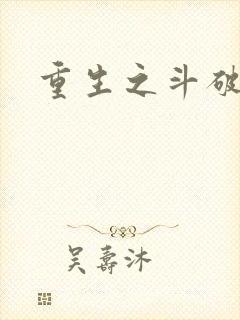 重生之斗破
吴寿沐